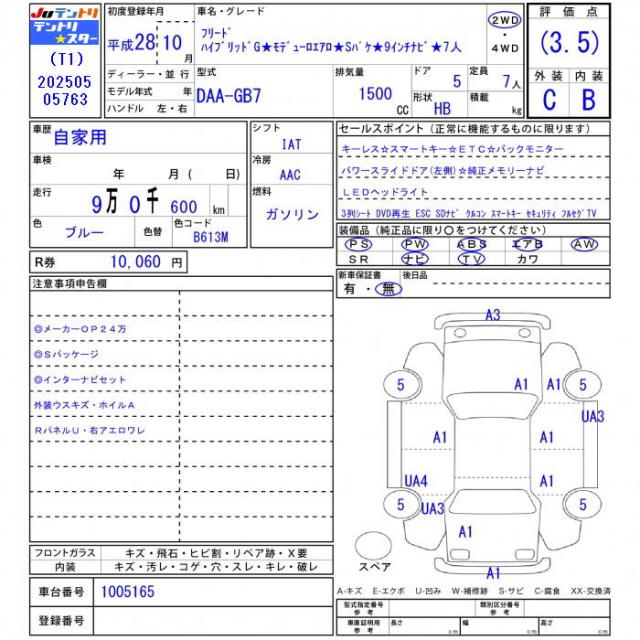 JUテントリ
テントリ
★スター
(T1)
202505
05763
初度登録年月
平成28年10月
ディーラー・並行
モデル年式 年
ハンドル 左・右
車名・グレード
フリード
ハイブリッドG★モデューロエアロ★Sパケ★9インチナビ★7人
2WD
・
4WD
評価点
(3.5)
外装 内装
C B
型式
DAA-GB7
排気量
1500
CC
ドア
5
定員
7人
形状
HB
積載
kg
車歴
自家用
車検
年 月( 日)
走行
9万0千600 km
色
ブルー
色替
色コード
B613M
シフト
IAT
冷房
AAC
燃料
ガソリン
セールスポイント(正常に機能するものに限ります)
キーレス☆スマートキー☆ETC☆バックモニター
パワースライドドア(左側)☆純正メモリーナビ
LEDヘッドライト
3列シート DVD再生 ESC SDナビ クルコン スマートキー セキュリティ フルセグTV
装備品(純正品に限り○をつけてください)
PS PW ABS エアB AW
SR ナビ TV カワ
R券 10,060 円
新車保証書
有・無
後日品
注意事項申告欄
◎メーカーOP24万
◎Sパッケージ
◎インターナビセット
外装ウスキズ・ホイルA
RパネルU・右アエロワレ
A3
5
A1
A1
5
UA3
A1
A1
UA4
A1
5
UA3
5
A1
A1
スペア
フロントガラス キズ・飛石・ヒビ割・リペア跡・X要
内装 キズ・汚レ・コゲ・穴・スレ・キレ・破レ
A-キズ E-エクボ U-凹み W-補修跡 S-サビ C-腐食 XX-交換済
車台番号 1005165
登録番号
型式指定番号
類別区分番号
車庫証明用
参考
長さ cm
幅 cm
高さ cm